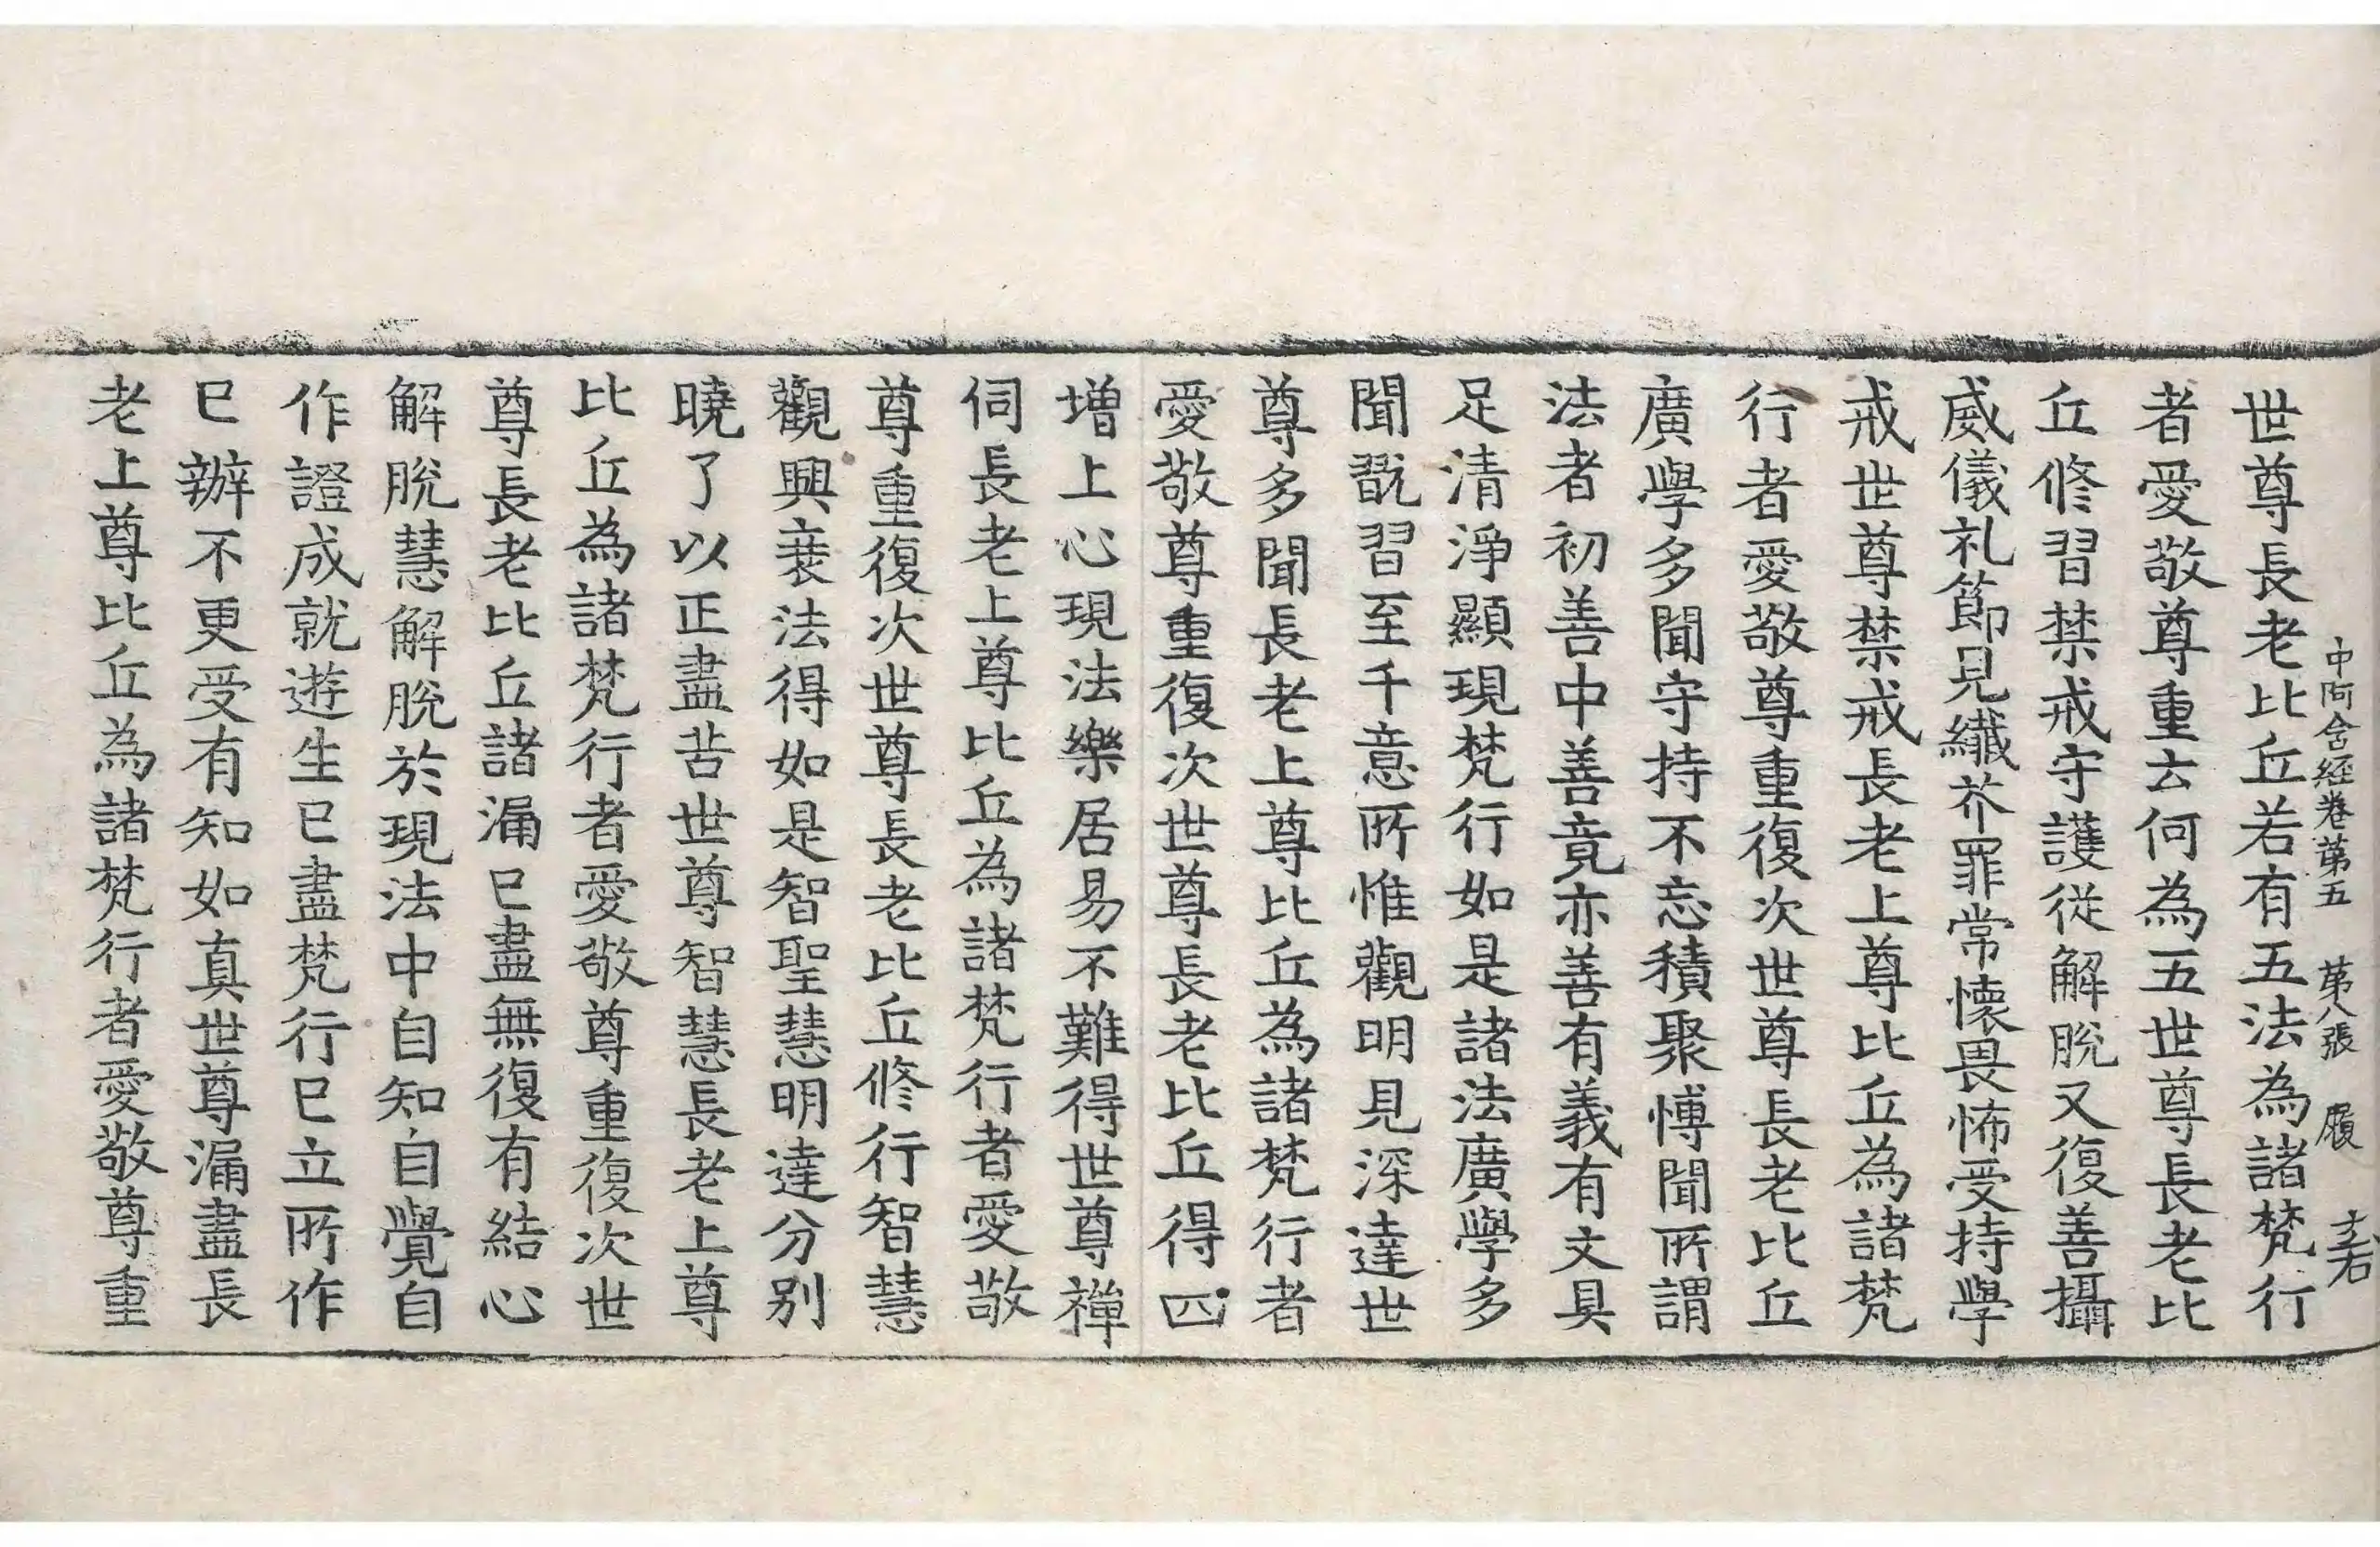 中阿含經卷第五　第八張　履　文右
世尊長老比丘若有五法為諸梵行
者愛敬尊重云何為五世尊長老比
丘修習禁戒守護從解脫又復善攝
威儀礼節見纖芥罪常懷畏怖受持學
戒世尊禁戒長老上尊比丘為諸梵
行者愛敬尊重復次世尊長老比丘
廣學多聞守持不忘積聚博聞所謂
法者初善中善竟亦善有義有文具
足清淨顯現梵行如是諸法廣學多
聞翫習至千意所惟觀明見深達世
尊多聞長老上尊比丘為諸梵行者
愛敬尊重復次世尊長老比丘得四
增上心現法樂居易不難得世尊禪
伺長老上尊比丘為諸梵行者愛敬
尊重復次世尊長老比丘修行智慧
觀興衰法得如是智聖慧明達分別
曉了以正盡苦世尊智慧長老上尊
比丘為諸梵行者愛敬尊重復次世
尊長老比丘諸漏已盡無復有結心
解脫慧解脫於現法中自知自覺自
作證成就遊生已盡梵行已立所作
已辦不更受有知如真世尊漏盡長
老上尊比丘為諸梵行者愛敬尊重